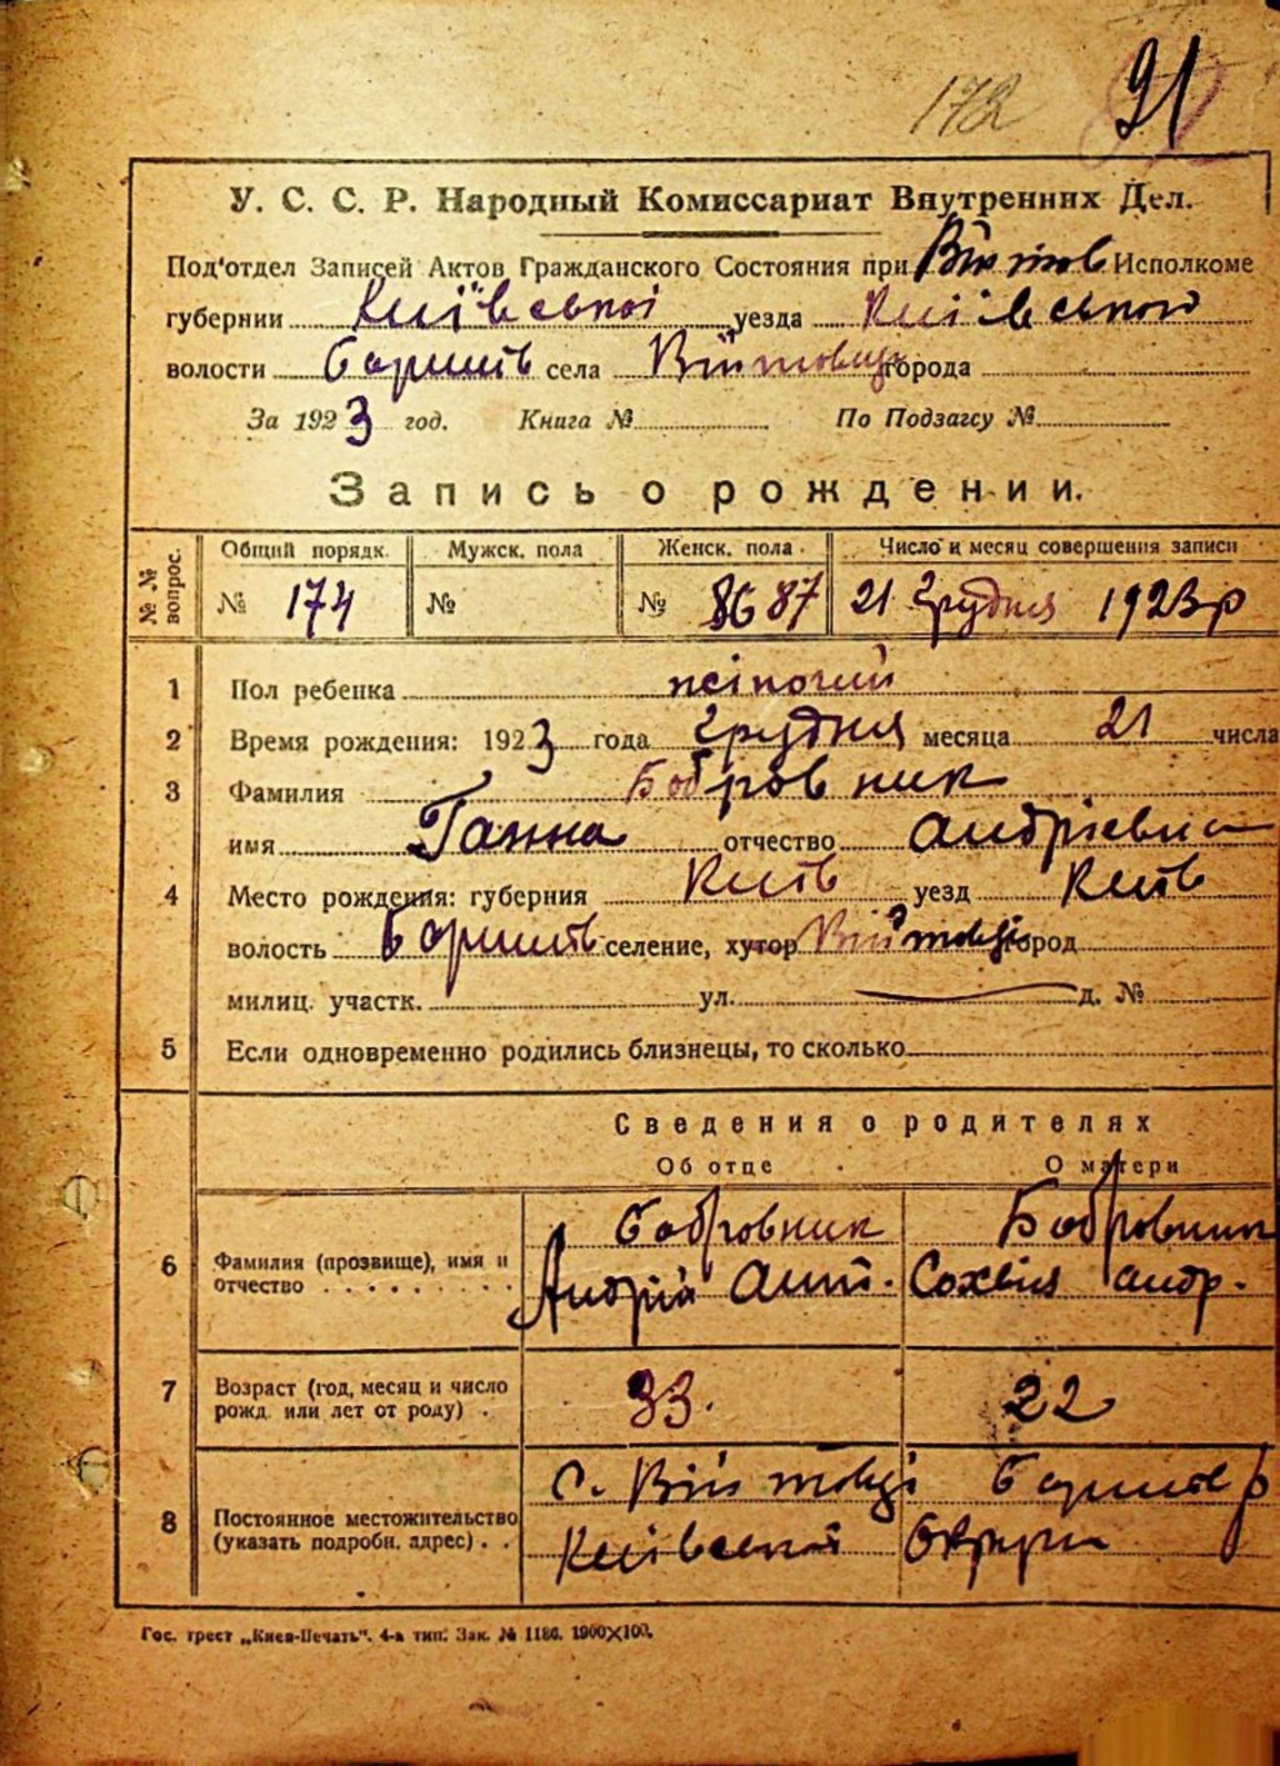 172 91
У. С. С. Р. Народный Комиссариат Внутренних Дел.
Под'отдел Записей Актов Гражданского Состояния при Війтов Исполкоме
губернии Київської уезда Київського
волости Баришів села Війтовці города
За 1923 год. Книга № По Подзагсу №
Запись о рождении.
№ № вопрос. Общий порядк. Мужск. пола Женск. пола Число и месяц совершения записи
№ 174 № № 86 87 21 Грудня 1923 р
1 Пол ребенка жіночий
2 Время рождения: 1923 года Грудня месяца 21 числа
3 Фамилия Бобровник
имя Ганна отчество Андріевна
4 Место рождения: губерния Київ уезд Київ
волость Баришів селение, хутор Війтовці город
милиц. участк. ул. д. №
5 Если одновременно родились близнецы, то сколько
Сведения о родителях
Об отце О матери
Бобровник Бобровник
6 Фамилия (прозвище), имя и
отчество Андрій Ант. Сохвія Андр.
7 Возраст (год, месяц и число
рожд. или лет от роду) 33. 22
с. Війтовці Баришів р
8 Постоянное местожительство
(указать подробн. адрес) Київської Округи
Гос. трест „Киев-Печать". 4-а тип. Зак. № 1186. 1900×100.